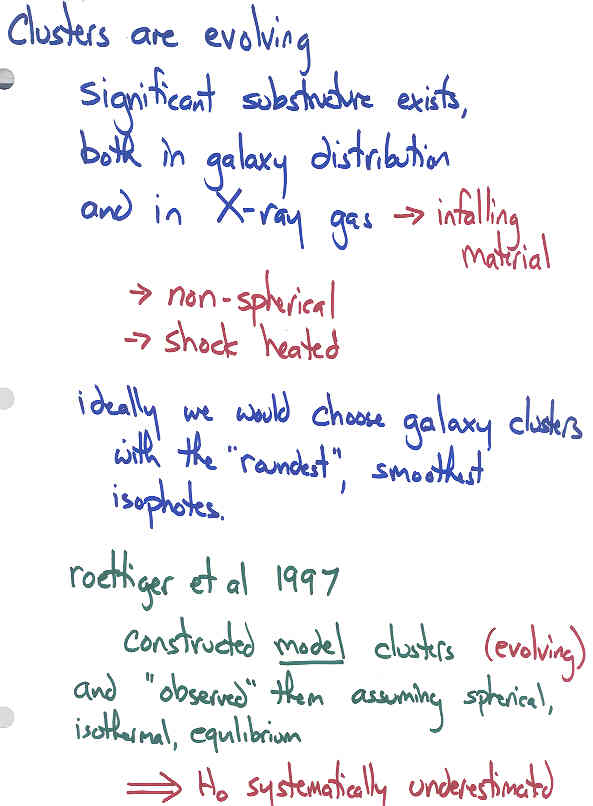 Clusters are evolving
significant substructure exists,
both in galaxy distribution
and in X-ray gas → infalling
material
→ non-spherical
→ shock heated
ideally we would choose galaxy clusters
with the "roundest", smoothest
isophotes.
roettiger et al 1997
constructed model clusters (evolving)
and "observed" them assuming spherical,
isothermal, equlibrium
⟹ H₀ systematically underestimated